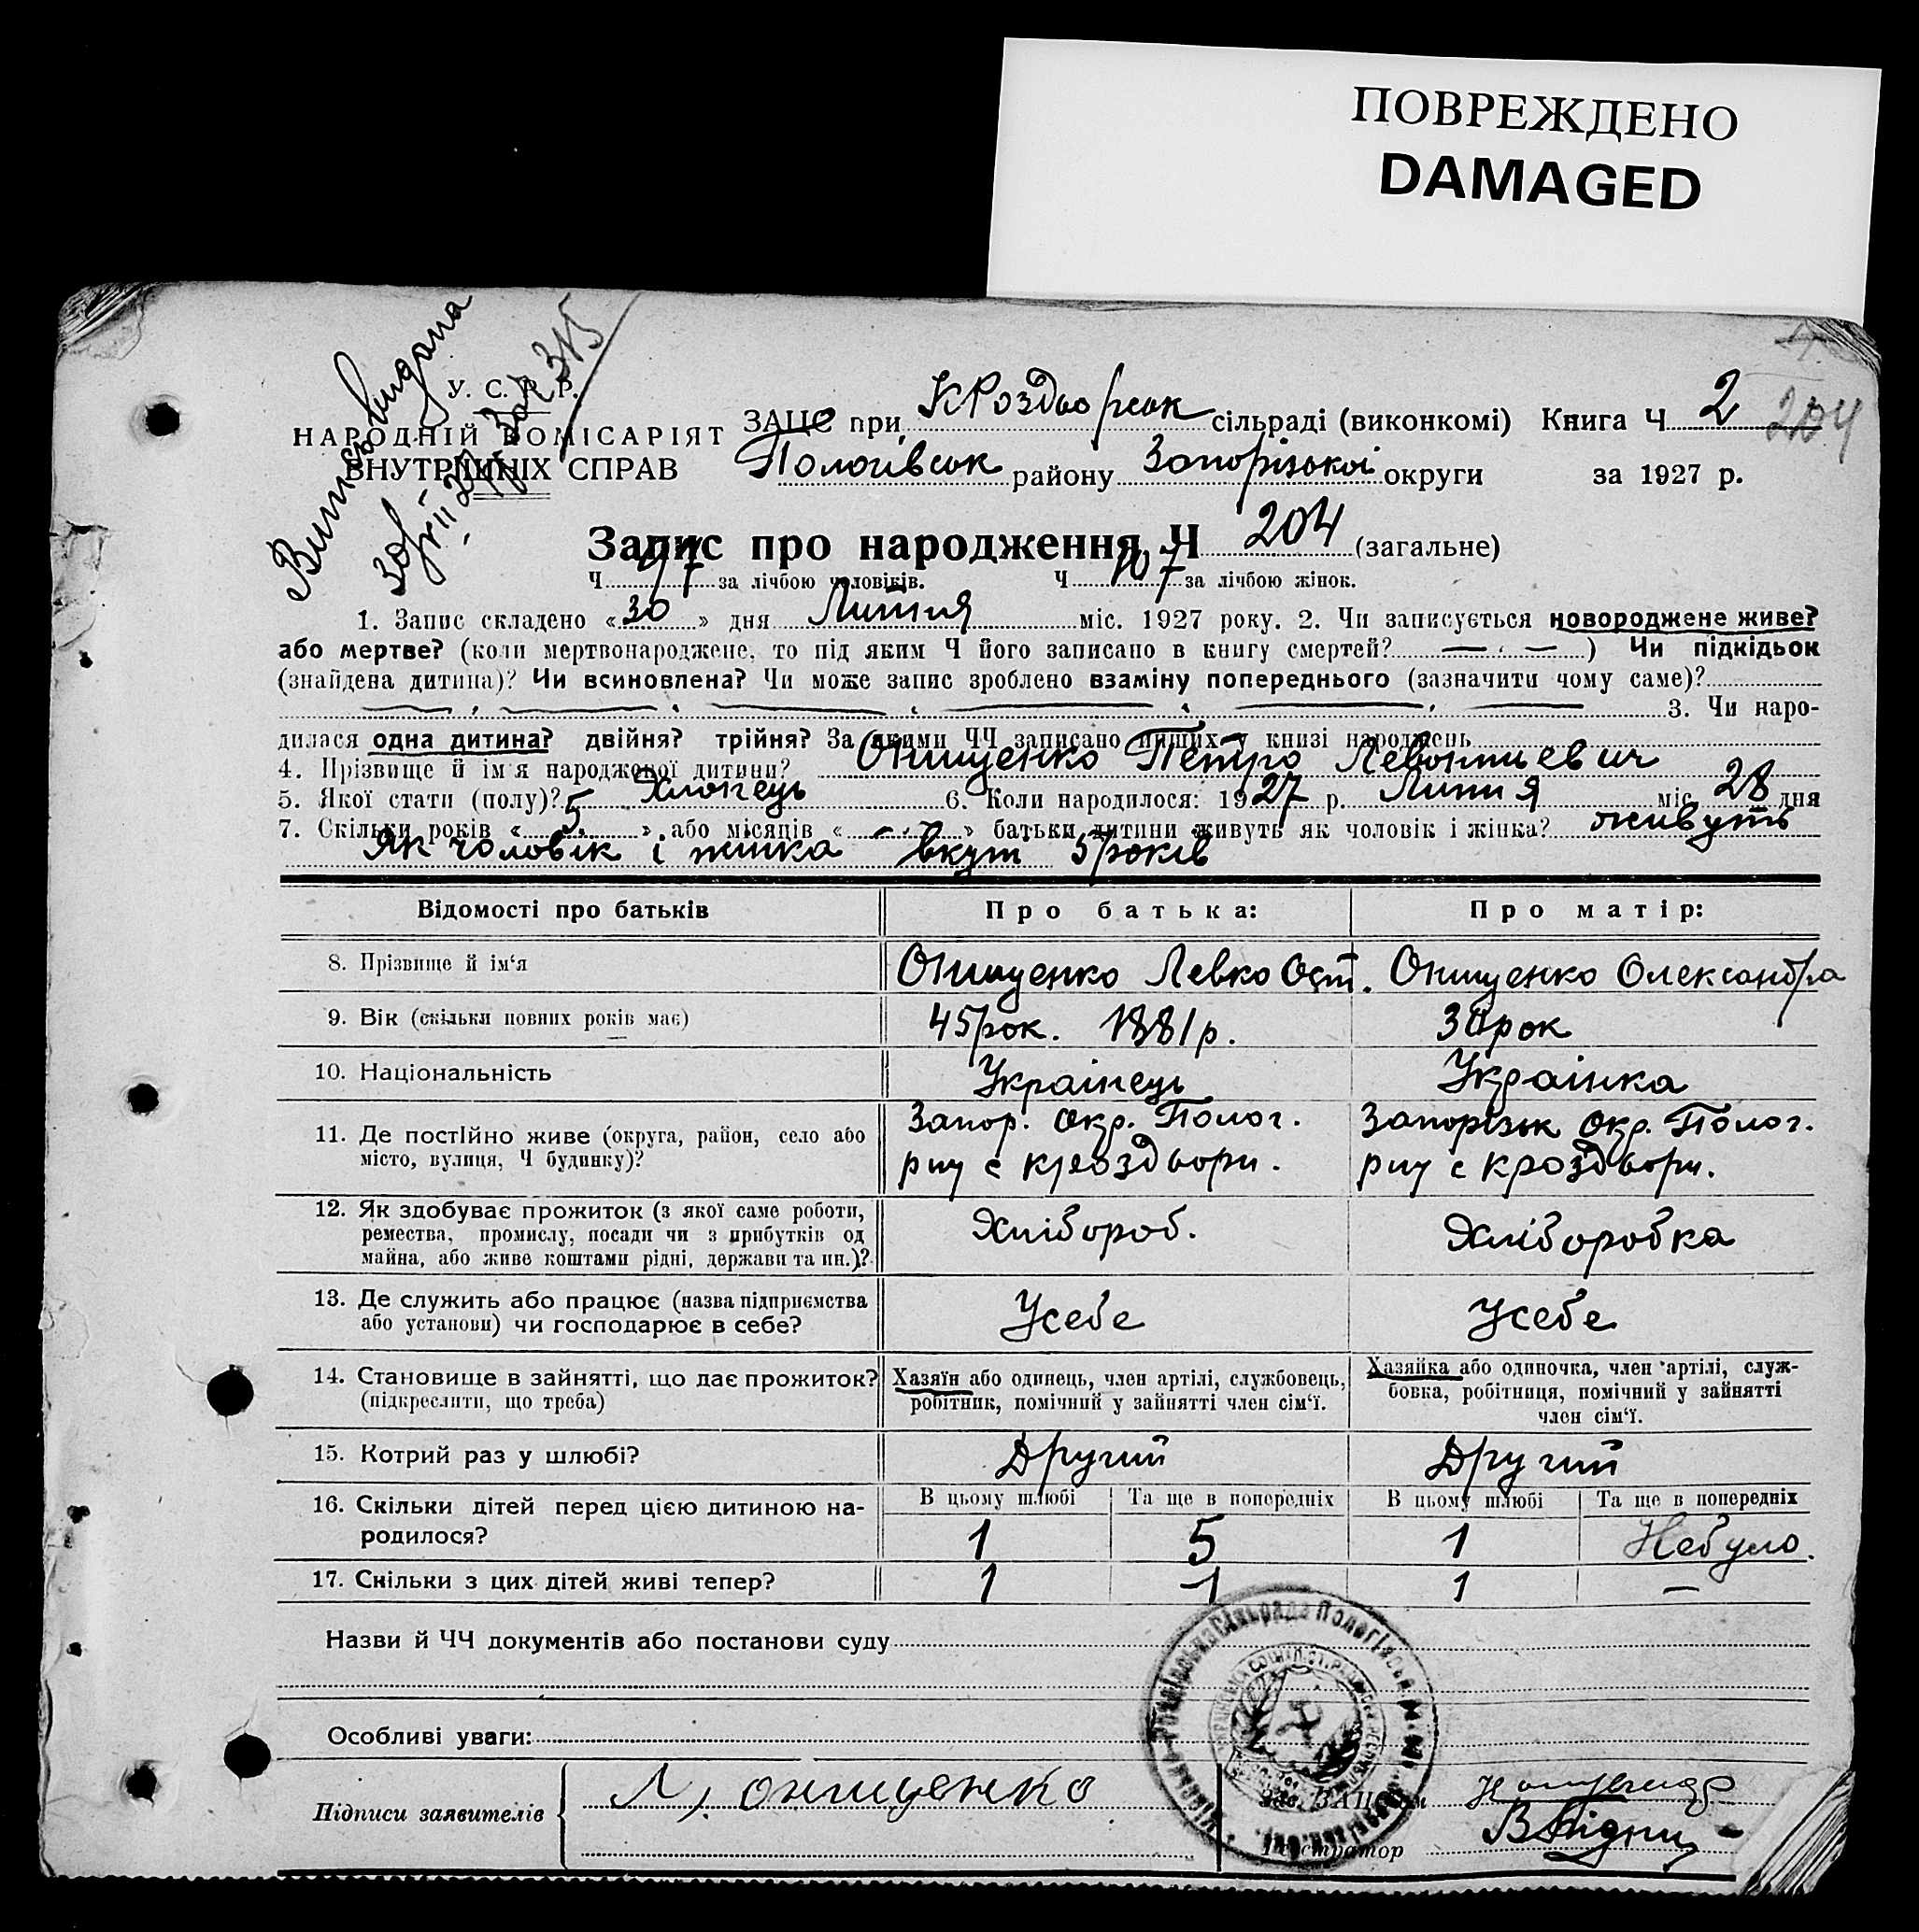 ПОВРЕЖДЕНО
DAMAGED
Виписъ видана
У. С. Р. Р.
НАРОДНІЙ КОМІСАРІЯТ
ВНУТРІШНІХ СПРАВ
ЗАЦС при КРоздворськ сільраді (виконкомі) Книга Ч 2 204
Пологівськ району Запорізької округи за 1927 р.
Запис про народження Ч 204 (загальне)
Ч 97 за лічбою чоловіків. Ч 107 за лічбою жінок.
1. Запис складено «30» дня Липня міс. 1927 року. 2. Чи записується новороджене живе?
або мертве? (коли мертвонароджене, то під яким Ч його записано в книгу смертей? — · —) Чи підкідьок
(знайдена дитина)? Чи всиновлена? Чи може запис зроблено взаміну попереднього (зазначити чому саме)?
3. Чи наро-
дилася одна дитина? двійня? трійня? За якими ЧЧ записано инших у книзі народжень
4. Прізвище й ім'я народженої дитини? Онищенко Петро Левонтиевич
5. Якої стати (полу)? Хлопець 6. Коли народилося: 1927 р. Липня міс. 28 дня
7. Скільки років «5» або місяців «- . -» батьки дитини живуть як чоловік і жінка? живуть
Як чоловік і жинка вкупі 5 років
Відомості про батьків Про батька: Про матір:
8. Прізвище й ім‘я Онищенко Левко Ост. Онищенко Олександра
9. Вік (скільки повних років має) 45 рок. 1881 р. 30 рок
10. Національність Украінець Украінка
11. Де постІйно живе (округа, район, село або Запор. Окр. Полог. Запорізьк Окр. Полог.
місто, вулиця, Ч будинку)? рну с Кроздвори. рну с Кроздвори.
12. Як здобуває прожиток (з якої саме роботи,
ремества, промислу, посади чи з прибутків од Хлібороб. Хліборобка
майна, або живе коштами рідні, держави та ин.)?
13. Де служить або працює (назва підприємства
або установи) чи господарює в себе? Усебе Усебе
14. Становище в зайнятті, що дає прожиток? Хазяїн або одинець, член артілі, службовець, Хазяйка або одиночка, член артілі, служ-
(підкреслити, що треба) робітник, помічний у зайнятті член сім‘ї. бовка, робітниця, помічний у зайнятті
член сім‘ї.
15. Котрий раз у шлюбі? Другий Другий
16. Скільки дітей перед цією дитиною на- В цьому шлюбі Та ще в попередніх В цьому шлюбі Та ще в попередніх
родилося? 1 5 1 Небуло.
17. Скільки з цих дітей живі тепер? 1 1 1 —
Назви й ЧЧ документів або постанови суду
Особливі уваги:
Підписи заявителів Л. онищенко
Зав. ЗАЦС'ом
Реєстратор